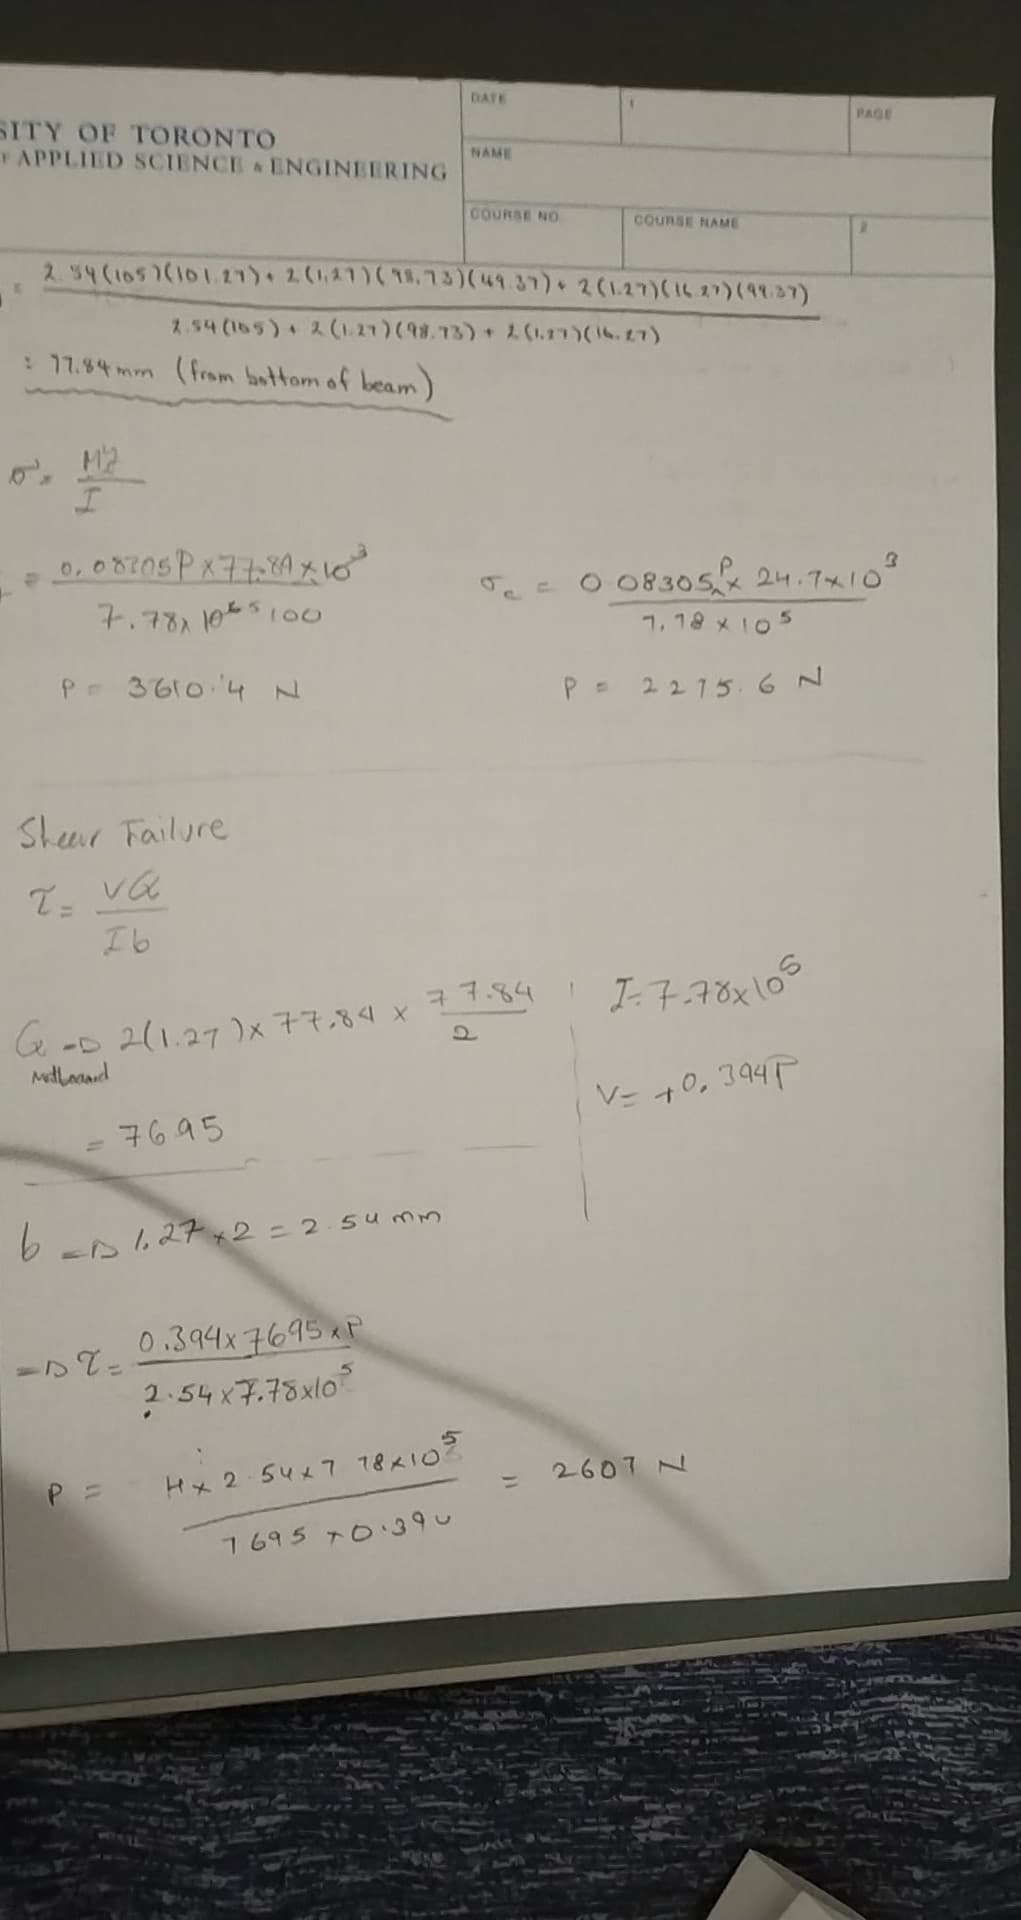 SITY OF TORONTO
APPLIED SCIENCE & ENGINEERING
DATE
1
PAGE
NAME
COURSE NO.
COURSE NAME
2
= 2.54(105)(101.27) + 2(1.27)(98.73)(49.37) + 2(1.27)(16.27)(99.37)
2.54(105) + 2(1.27)(98.73) + 2(1.27)(16.27)
= 77.84 mm (from bottom of beam)
σ = My
I
= 0.08305P x 77.84 x 10³
7.78 x 10⁵ 100
P = 3610.4 N
σc = 0.08305P x 24.7x10³
7.78 x 10⁵
P = 2275.6 N
Shear Failure
τ = VQ
Ib
Q => 2(1.27) x 77.84 x 77.84
2
= 7695
I = 7.78x10⁵
V = +0.394P
b => 1.27 x 2 = 2.54 mm
=> τ = 0.394 x 7695 x P
2.54 x 7.78x10⁵
P = 4 x 2.54 x 7.78x10⁵
7695 x 0.394
= 2607 N